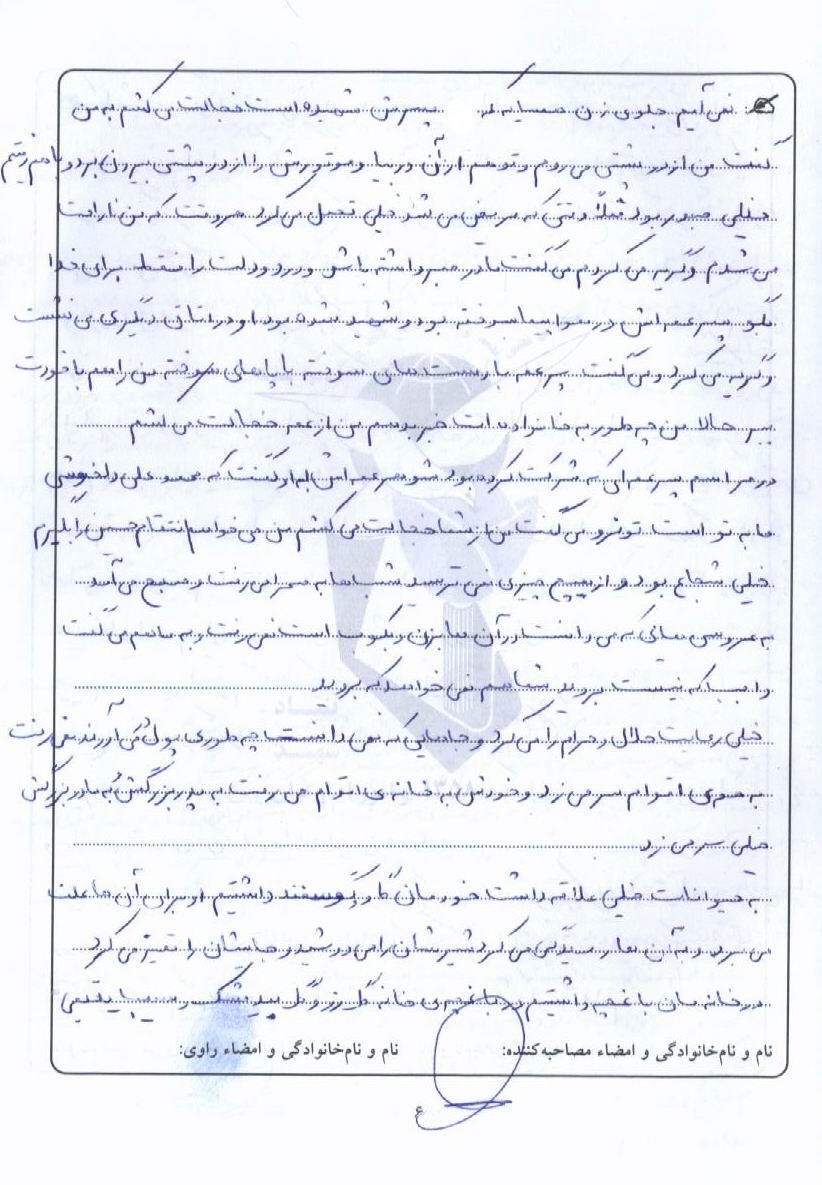 نمی آیم جلوی زن همسایه که پسرش شهید شده است خجالت می کشم به من
گفت من از در پشتی می روم و تو هم از آن در بیا و موتورش را از در پشتی بیرون برد و با هم رفتیم
خیلی صبور بود مثلاً وقتی که مریض می شد خیلی تحمل می کرد هر وقت که من ناراحت
می شدم و گریه می کردم می گفت مادر صبر داشته باش و درد و دلت را فقط برای خدا
بگو پسر عمه اش در هواپیما سوخته بود و شهید شده بود او در اتاق دیگری می نشست
و گریه می کرد و می گفت پسر عمه با دست های سوخته با پاهای سوخته من را هم با خودت
ببر حالا من چه طور به خانواده ات خبر بدهم من از عمه خجالت می کشم
در مراسم پسر عمه ای که شرکت کرده بود شوهر عمه اش به او گفت که محمد علی دلخوشی
ما به تو است تو نرو می گفت من از شما خجالت می کشم من می خواهم انتقام حسین را بگیرم
خیلی شجاع بود و از هیچ چیزی نمی ترسید شب ها به صحرا می رفت و صبح می آمد
به عروسی هائی که می دانست در آن ها بزن و بکوب است نمی رفت و به ما هم می گفت
واجب که نیست بروید شما هم نمی خواهد که بروید
خیلی رعایت حلال و حرام را می کرد و جاهایی که نمی دانست چه طوری پول می آورند نمی رفت
به همه ی اقوام سر می زد و خودش به خانه ی اقوام می رفت به پدر بزرگش و به مادر بزرگش
خیلی سر می زد
به حیوانات خیلی علاقه داشت خودمان گاو و گوسفند داشتیم او برای آن ها علف
می برد و به آن ها رسیدگی می کرد شیرشان را می دوشید و جایشان را تمیز می کرد
در خانه مان باغچه داشتیم در باغچه ی خانه گل رز و گل
نام و نام‌خانوادگی و امضاء مصاحبه‌کننده: نام و نام‌خانوادگی و امضاء راوی:
۶